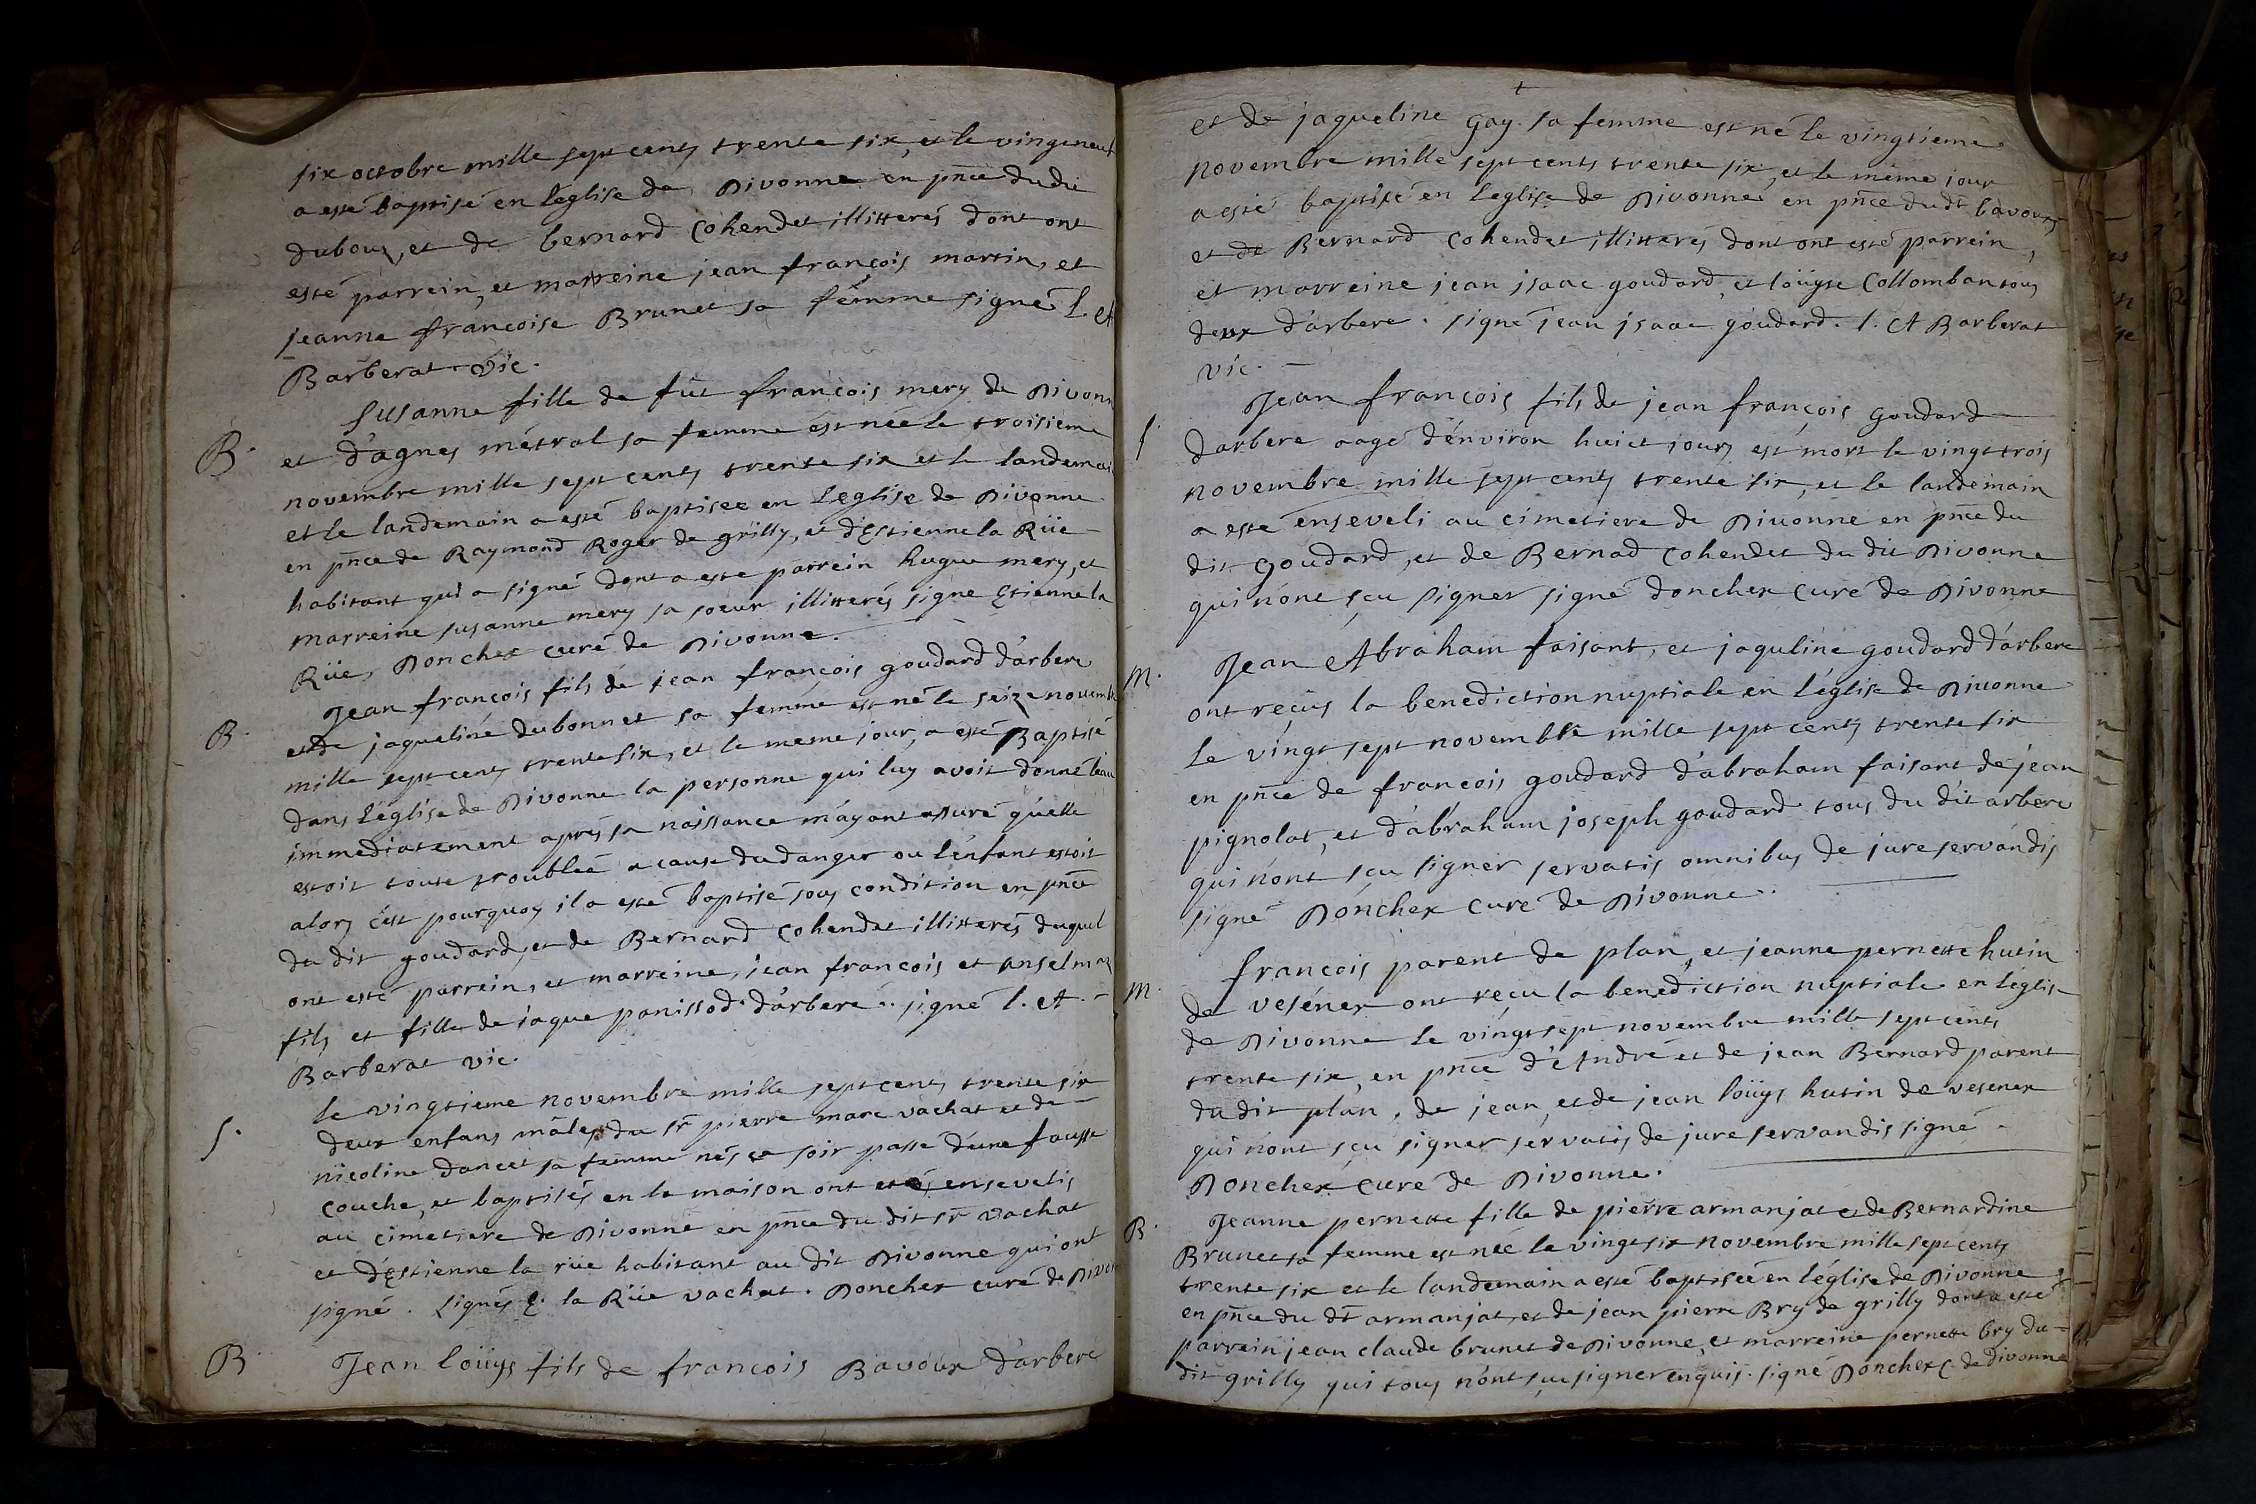 six octobre mille sept cents trente six, et le vingtneuf
a esté baptisé en l'église de Divonne en pnce dudit
dubouz, et de bernard Cohendet illitterés dont ont
esté parrein, et marreine jean françois martin, et
jeanne françoise Brunet sa femme signé l. A
Barberat vic.
B. Susanne fille de fut françois mery de Divonn
et d'agnes métral sa femme est née le troisieme
novembre mille sept cents trente six et le landemai
et le landemain a esté baptisee en l'eglise de Divonne
en pnce de Raymond Roger de grilly, et d'Estienne la Rüe
habitant qui a signé dont a este parrein hugue mery, et
marreine susanne mery sa soeur illitterés signe Etienne la
Rüe, Donchex curé de Divonne.
B. Jean françois fils de jean françois goudard d'arbere
et de jaqueline dubonnet sa femme est né le seize novemb
mille sept cents trente six, et le meme jour, a esté Baptisé
dans l'église de Divonne la personne qui luy avoit donné leau
immediatement aprés sa naissance m'ayant assuré qu'elle
estoit toute troubleé a cause du danger ou l'enfant estoit
alors c'est pourquoy il a esté baptisé sous condition en pnce
du dit goudard, et de Bernard Cohendet illitterés duquel
ont esté parrein, et marreine, jean françois et anselmaz
fils et fille de jaque panissod d'arbere. signé l. A.
Barberat vic.
S. le vingtieme novembre mille sept cents trente six
deux enfans mâles du sr pierre marc vachat et de
nicoline dancet sa femme nés ce soir passé d'une fausse
couche, et baptisés en la maison ont etés ensevelis
au cimetiere de Divonne en pnce du dit sr vachat
et d'Estienne la rüe habitant au dit Divonne qui ont
signé. signés E. la Rüe vachat. Donchex curé de Divon
B. Jean loüys fils de françois Bavoux d'arbere
et de jaqueline gay sa femme est né le vingtieme
novembre mille sept cents trente six, et le même jour
a esté baptisé en l'eglise de Divonne en pnce dudt bavoux,
et de Bernard Cohendet illitterés dont ont esté parrein,
et marreine jean jsaac goudard, et loüyse Collomban tous
deux d'arbere. signé jean jsaac goudard. l. A Barberat
vic.
S. Jean françois fils de jean françois goudard
darbere aagé d'environ huict jours est mort le vingt trois
novembre mille sept cents trente six, et le landemain
a este enseveli au cimetiere de Divonne en pnce du
dit goudard, et de Bernad Cohendet du dit Divonne
qui n'ont sçu signer signé donchex curé de Divonne
M. Jean Abraham faisant, et jaquline goudard d'arbere
ont reçus la benediction nuptiale en l'église de Divonne
le vingt sept novembre mille sept cents trente six
en pnce de françois goudard d'abraham faisant de jean
pignolat, et d'abraham joseph goudard tous du dit arbere
qui n'ont sçu signer servatis omnibus de jure servandis
signé Donchex Curé de Divonne.
M. françois parent de plan, et jeanne pernette hutin
de vesénex ont reçu la benediction nuptiale en l'église
de Divonne le vingt sept novembre mille sept cents
trente six, en pnce d'Andre et de jean Bernard parent
du dit plan, de jean, et de jean loüys hutin de vesenex
qui n'ont sçu signer servatis de jure servandis signé
Donchex Curé de Divonne.
B. Jeanne pernette fille de pierre armanjat et de Bernardine
Brunet sa femme est neé le vingt six novembre mille sept cents
trente six et le landemain a esté baptiseé en l'église de Divonne
en pnce du dt armanjat, et de jean pierre Bry de grilly dont a esté
parrein jean claude brunet de Divonne, et marreine pernette bry du
dit grilly qui tous n'ont sçu signer enquis. signé Donchex C. de Divonne